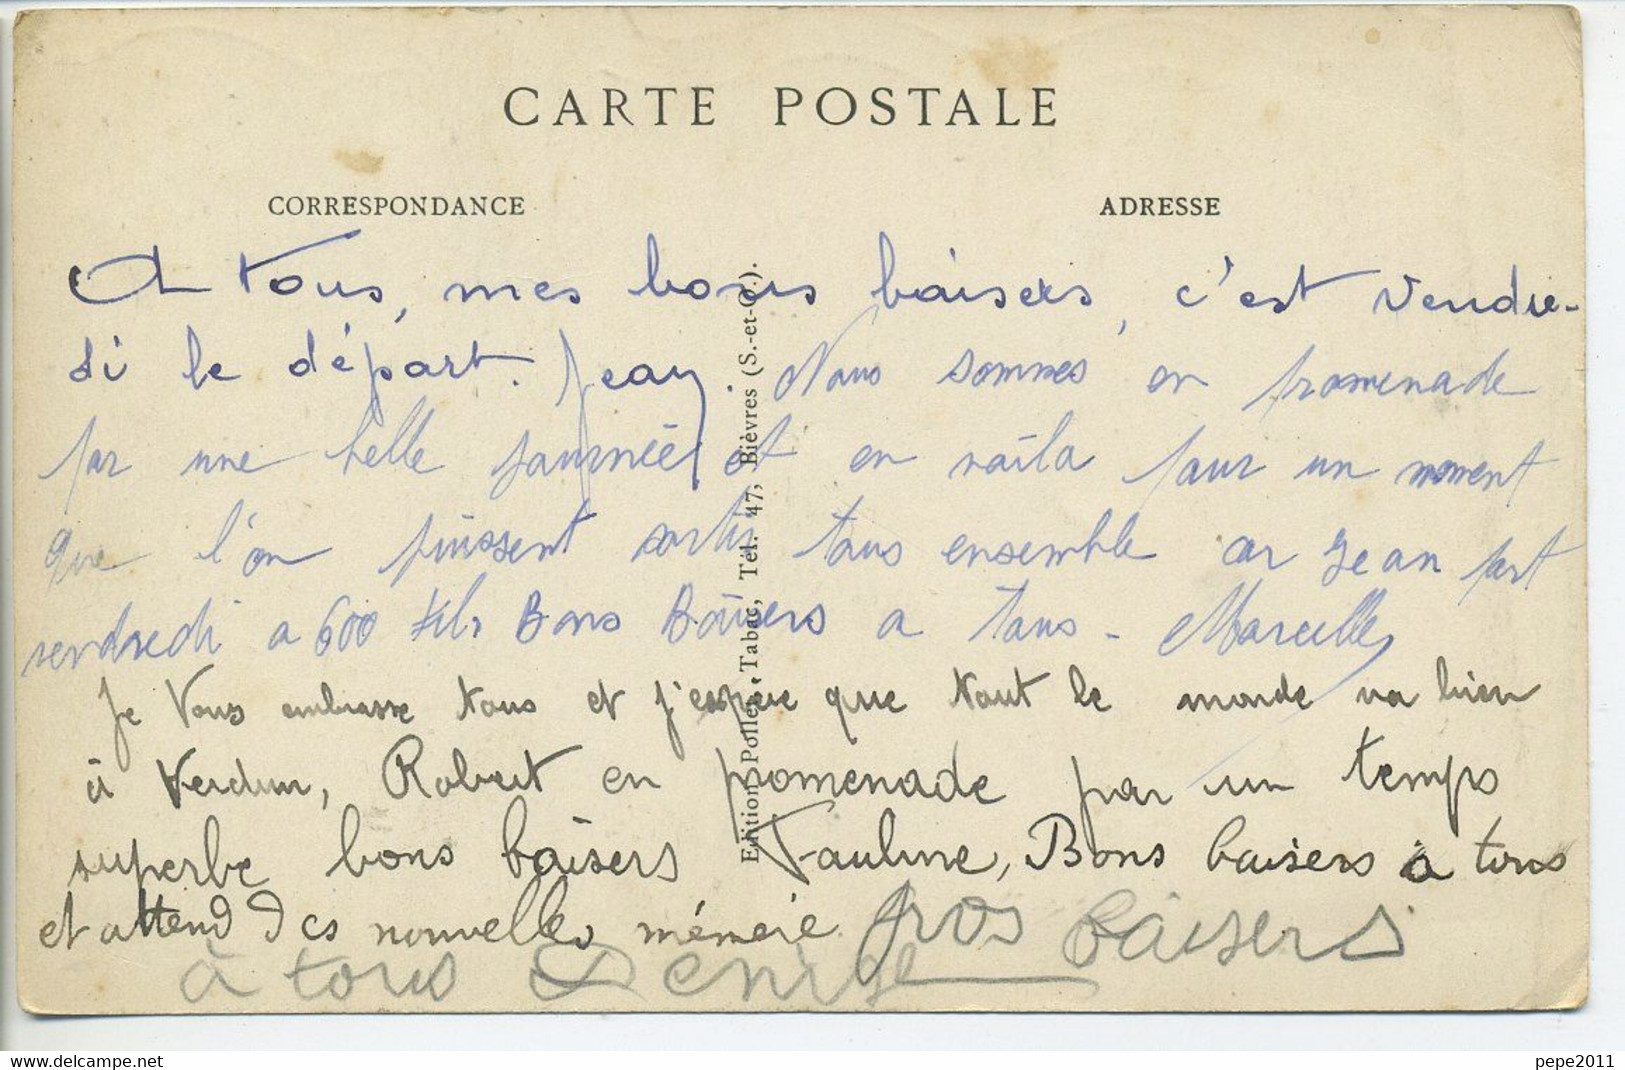 CARTE POSTALE
CORRESPONDANCE
ADRESSE
A tous, mes bons baisers, c'est vendre-
di le départ. Jean. Nous sommes en promenade
par une belle journée et en voila pour un moment
que l'on puissent sortir tous ensemble car Jean part
vendredi a 600 kil, Bons Baisers a tous - Marcelle
Je vous embrasse tous et j'espere que tout le monde va bien
à Verdun, Robert en promenade par un temps
superbe bons baisers Pauline, Bons baisers à tous
et attend des nouvelles mémère. gros baisers
à tous Denise
Edition Pollet, Tabac, Tél. 47, Bièvres (S.-et-O.).
www.delcampe.net
pepe2011